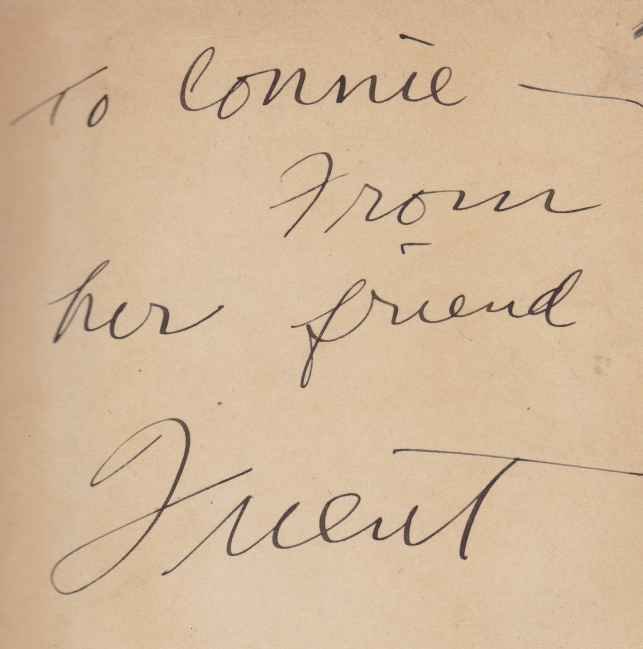 To Connie —
From
her friend
Trent